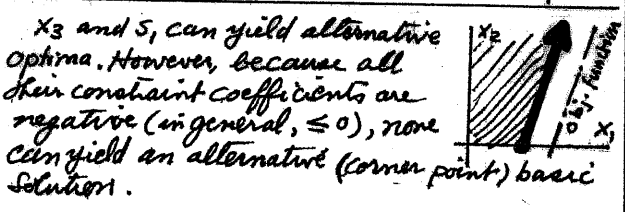 X₃ and S, can yield alternative
optima. However, because all
their constraint coefficients are
negative (in general, ≤ 0), none
can yield an alternative (corner point) basic
solution.
X₂
obj. function
X₁